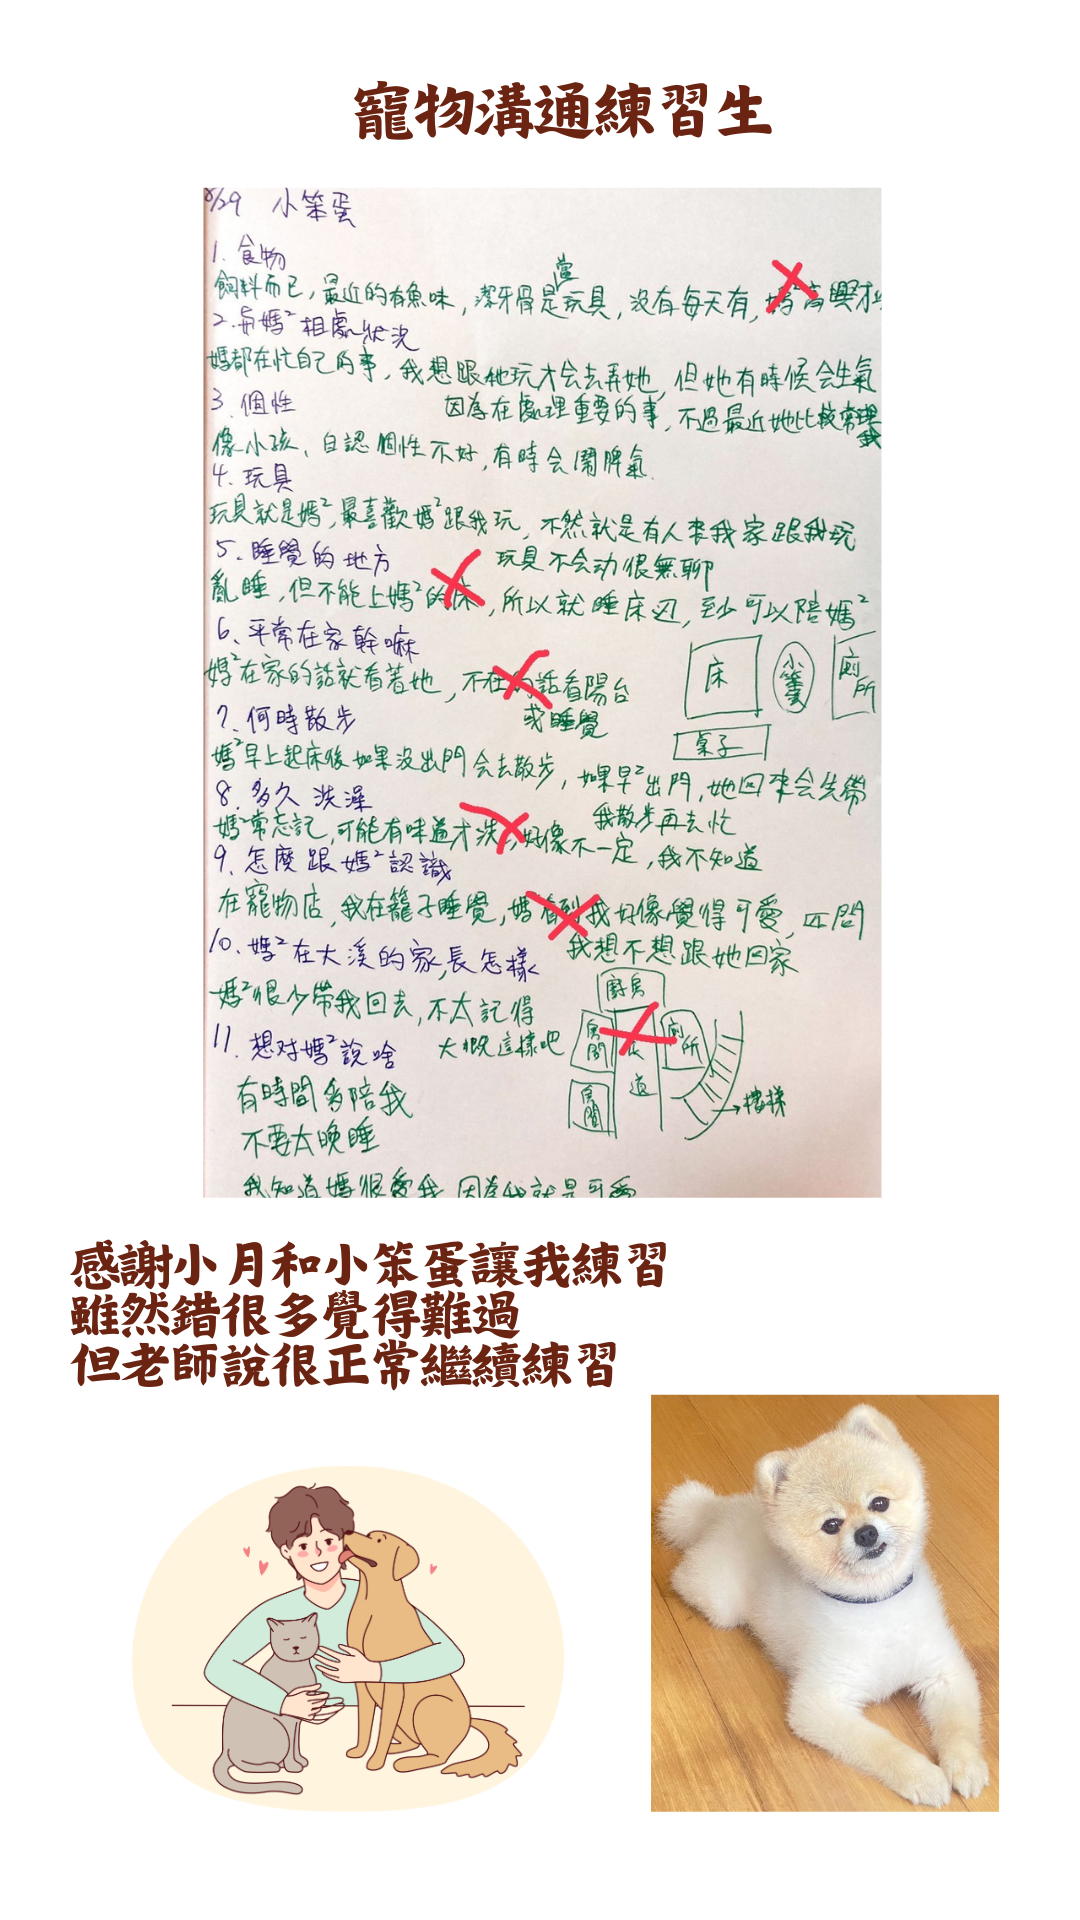 寵物溝通練習生
8/29 小笨蛋
1. 食物
當
飼料而已,最近的有魚味,潔牙骨是玩具,沒有每天有,媽²高興才
2. 與媽²相處狀況
媽都在忙自己的事,我想跟她玩才会去弄她,但她有時候会生氣
3. 個性
因為在處理重要的事,不過最近她比較常理我
像小孩、自認個性不好,有時会鬧脾氣
4. 玩具
玩具就是媽²,最喜歡媽²跟我玩,不然就是有人來我家跟我玩
5. 睡覺的地方
玩具不会动很無聊
亂睡,但不能上媽²的床,所以就睡床边,至少可以陪媽²
6、平常在家幹嘛
媽²在家的話就看著她,不在的話看陽台
或睡覺
床
小笨蛋
廁所
桌子
7. 何時散步
媽²早上起床後如果沒出門会去散步,如果早²出門,她回來会先帶
我散步再去忙
8. 多久洗澡
媽²常忘記,可能有味道才洗,好像不一定,我不知道
9. 怎麼跟媽²認識
在寵物店,我在籠子睡覺,媽看到我好像覺得可愛,匹問
我想不想跟她回家
10. 媽²在大溪的家,長怎樣
媽²很少帶我回去,不太記得
大概這樣吧
廚房
房間
道
廁所
房間
→樓梯
11. 想对媽²說啥
有時間多陪我
不要太晚睡
我知道媽很愛我 因為我就是可愛
感謝小月和小笨蛋讓我練習
雖然錯很多覺得難過
但老師說很正常繼續練習